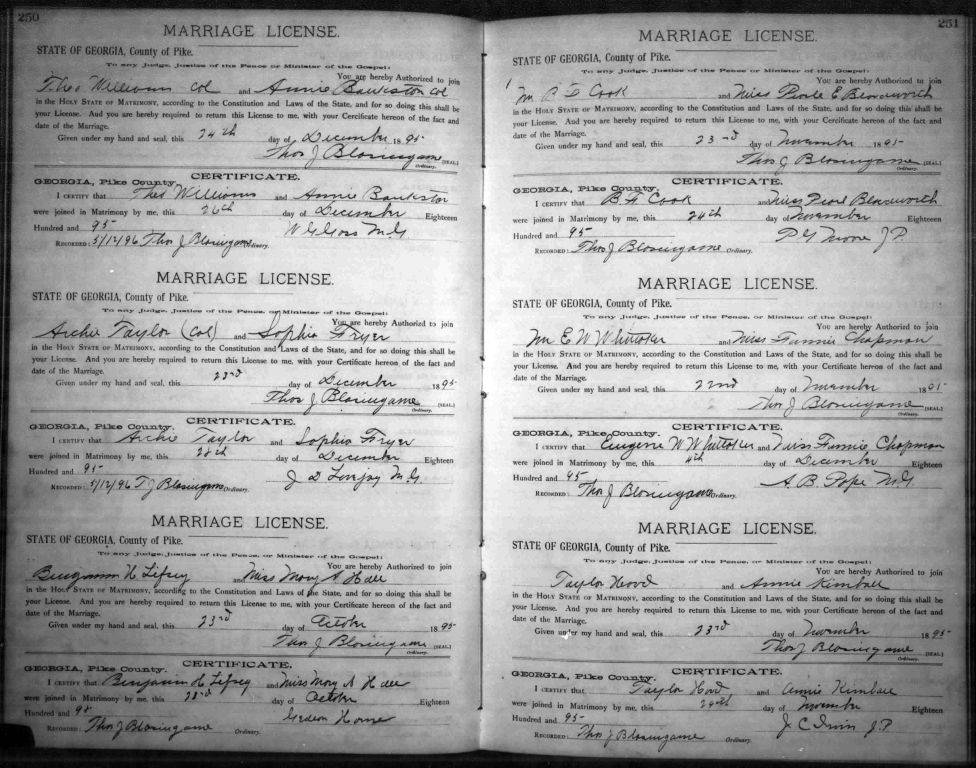 250
MARRIAGE LICENSE.
STATE OF GEORGIA, County of Pike.
To any Judge, Justice of the Peace or Minister of the Gospel:
You are hereby Authorized to join
Theo Williams Col and Annie Bankston Col
in the Holy State of Matrimony, according to the Constitution and Laws of the State, and for so doing this shall be
your License. And you are hereby required to return this License to me, with your Certificate hereon of the fact and
date of the Marriage.
Given under my hand and seal, this 24th day of December 1895
Thos J Blasingame (SEAL.)
Ordinary.
CERTIFICATE.
GEORGIA, Pike County.
I certify that Theo Williams and Annie Bankston
were joined in Matrimony by me, this 26th day of December Eighteen
Hundred and 95 M.G
Recorded: 5/12/96 Thos J Blasingame Ordinary.
MARRIAGE LICENSE.
STATE OF GEORGIA, County of Pike.
To any Judge, Justice of the Peace, or Minister of the Gospel:
You are hereby Authorized to join
Archie Taylor (Col) and Sophia Fryer
in the Holy State of Matrimony, according to the Constitution and Laws of the State, and for so doing this shall be
your License. And you are hereby required to return this License to me, with your Certificate hereon of the fact and
date of the Marriage.
Given under my hand and seal, this 23rd day of December 1895
Thos J Blasingame (SEAL)
Ordinary.
CERTIFICATE.
GEORGIA, Pike County.
I certify that Archie Taylor and Sophia Fryer
were joined in Matrimony by me, this 28th day of December Eighteen
Hundred and 95 J D M.G
Recorded: 5/12/96 T J Blasingame Ordinary.
MARRIAGE LICENSE.
STATE OF GEORGIA, County of Pike.
To any Judge, Justice of the Peace, or Minister of the Gospel:
You are hereby Authorized to join
Benjamin H Lifsey and Miss Mary A Hale
in the Holy State of Matrimony, according to the Constitution and Laws of the State, and for so doing this shall be
your License. And you are hereby required to return this License to me, with your Certificate hereon of the fact and
date of the Marriage.
Given under my hand and seal, this 23rd day of October 1895
Thos J Blasingame (SEAL)
Ordinary.
CERTIFICATE.
GEORGIA, Pike County.
I certify that Benjamin H Lifsey and Miss Mary A Hale
were joined in Matrimony by me, this 23rd day of October Eighteen
Hundred and 95
Recorded: Thos J Blasingame Ordinary.
251
MARRIAGE LICENSE.
STATE OF GEORGIA, County of Pike.
To any Judge, Justice of the Peace or Minister of the Gospel:
You are hereby Authorized to join
Mr B F Cook and Miss Pearl E Bloodworth
in the Holy State of Matrimony, according to the Constitution and Laws of the State, and for so doing this shall be
your License. And you are hereby required to return this License to me, with your Certificate hereon of the fact and
date of the Marriage.
Given under my hand and seal, this 23rd day of November 1895
Thos J Blasingame (SEAL)
Ordinary.
CERTIFICATE.
GEORGIA, Pike County.
I certify that B F Cook and Miss Pearl Bloodworth
were joined in Matrimony by me, this 24th day of November Eighteen
Hundred and 95 Moore J.P.
Recorded: Thos J Blasingame Ordinary.
MARRIAGE LICENSE.
STATE OF GEORGIA, County of Pike.
To any Judge, Justice of the Peace, or Minister of the Gospel:
You are hereby Authorized to join
Mr E W Whittaker and Miss Fannie Chapman
in the Holy State of Matrimony, according to the Constitution and Laws of the State, and for so doing this shall be
your License. And you are hereby required to return this License to me, with your Certificate hereon of the fact and
date of the Marriage.
Given under my hand and seal, this 22nd day of November 1895
Thos J Blasingame (SEAL)
Ordinary.
CERTIFICATE.
GEORGIA, Pike County.
I certify that Eugene W Whittaker and Miss Fannie Chapman
were joined in Matrimony by me, this day of December Eighteen
Hundred and 95 A. B. Pope M.G
Recorded: Thos J Blasingame Ordinary.
MARRIAGE LICENSE.
STATE OF GEORGIA, County of Pike.
To any Judge, Justice of the Peace, or Minister of the Gospel:
You are hereby Authorized to join
Taylor Hood and Annie Kimball
in the Holy State of Matrimony, according to the Constitution and Laws of the State, and for so doing this shall be
your License. And you are hereby required to return this License to me, with your Certificate hereon of the fact and
date of the Marriage.
Given under my hand and seal, this 23rd day of November 1895
Thos J Blasingame (SEAL)
Ordinary.
CERTIFICATE.
GEORGIA, Pike County.
I certify that Taylor Hood and Annie Kimball
were joined in Matrimony by me, this 24th day of November Eighteen
Hundred and 95 J. C. Irvin J.P.
Recorded: Thos J Blasingame Ordinary.